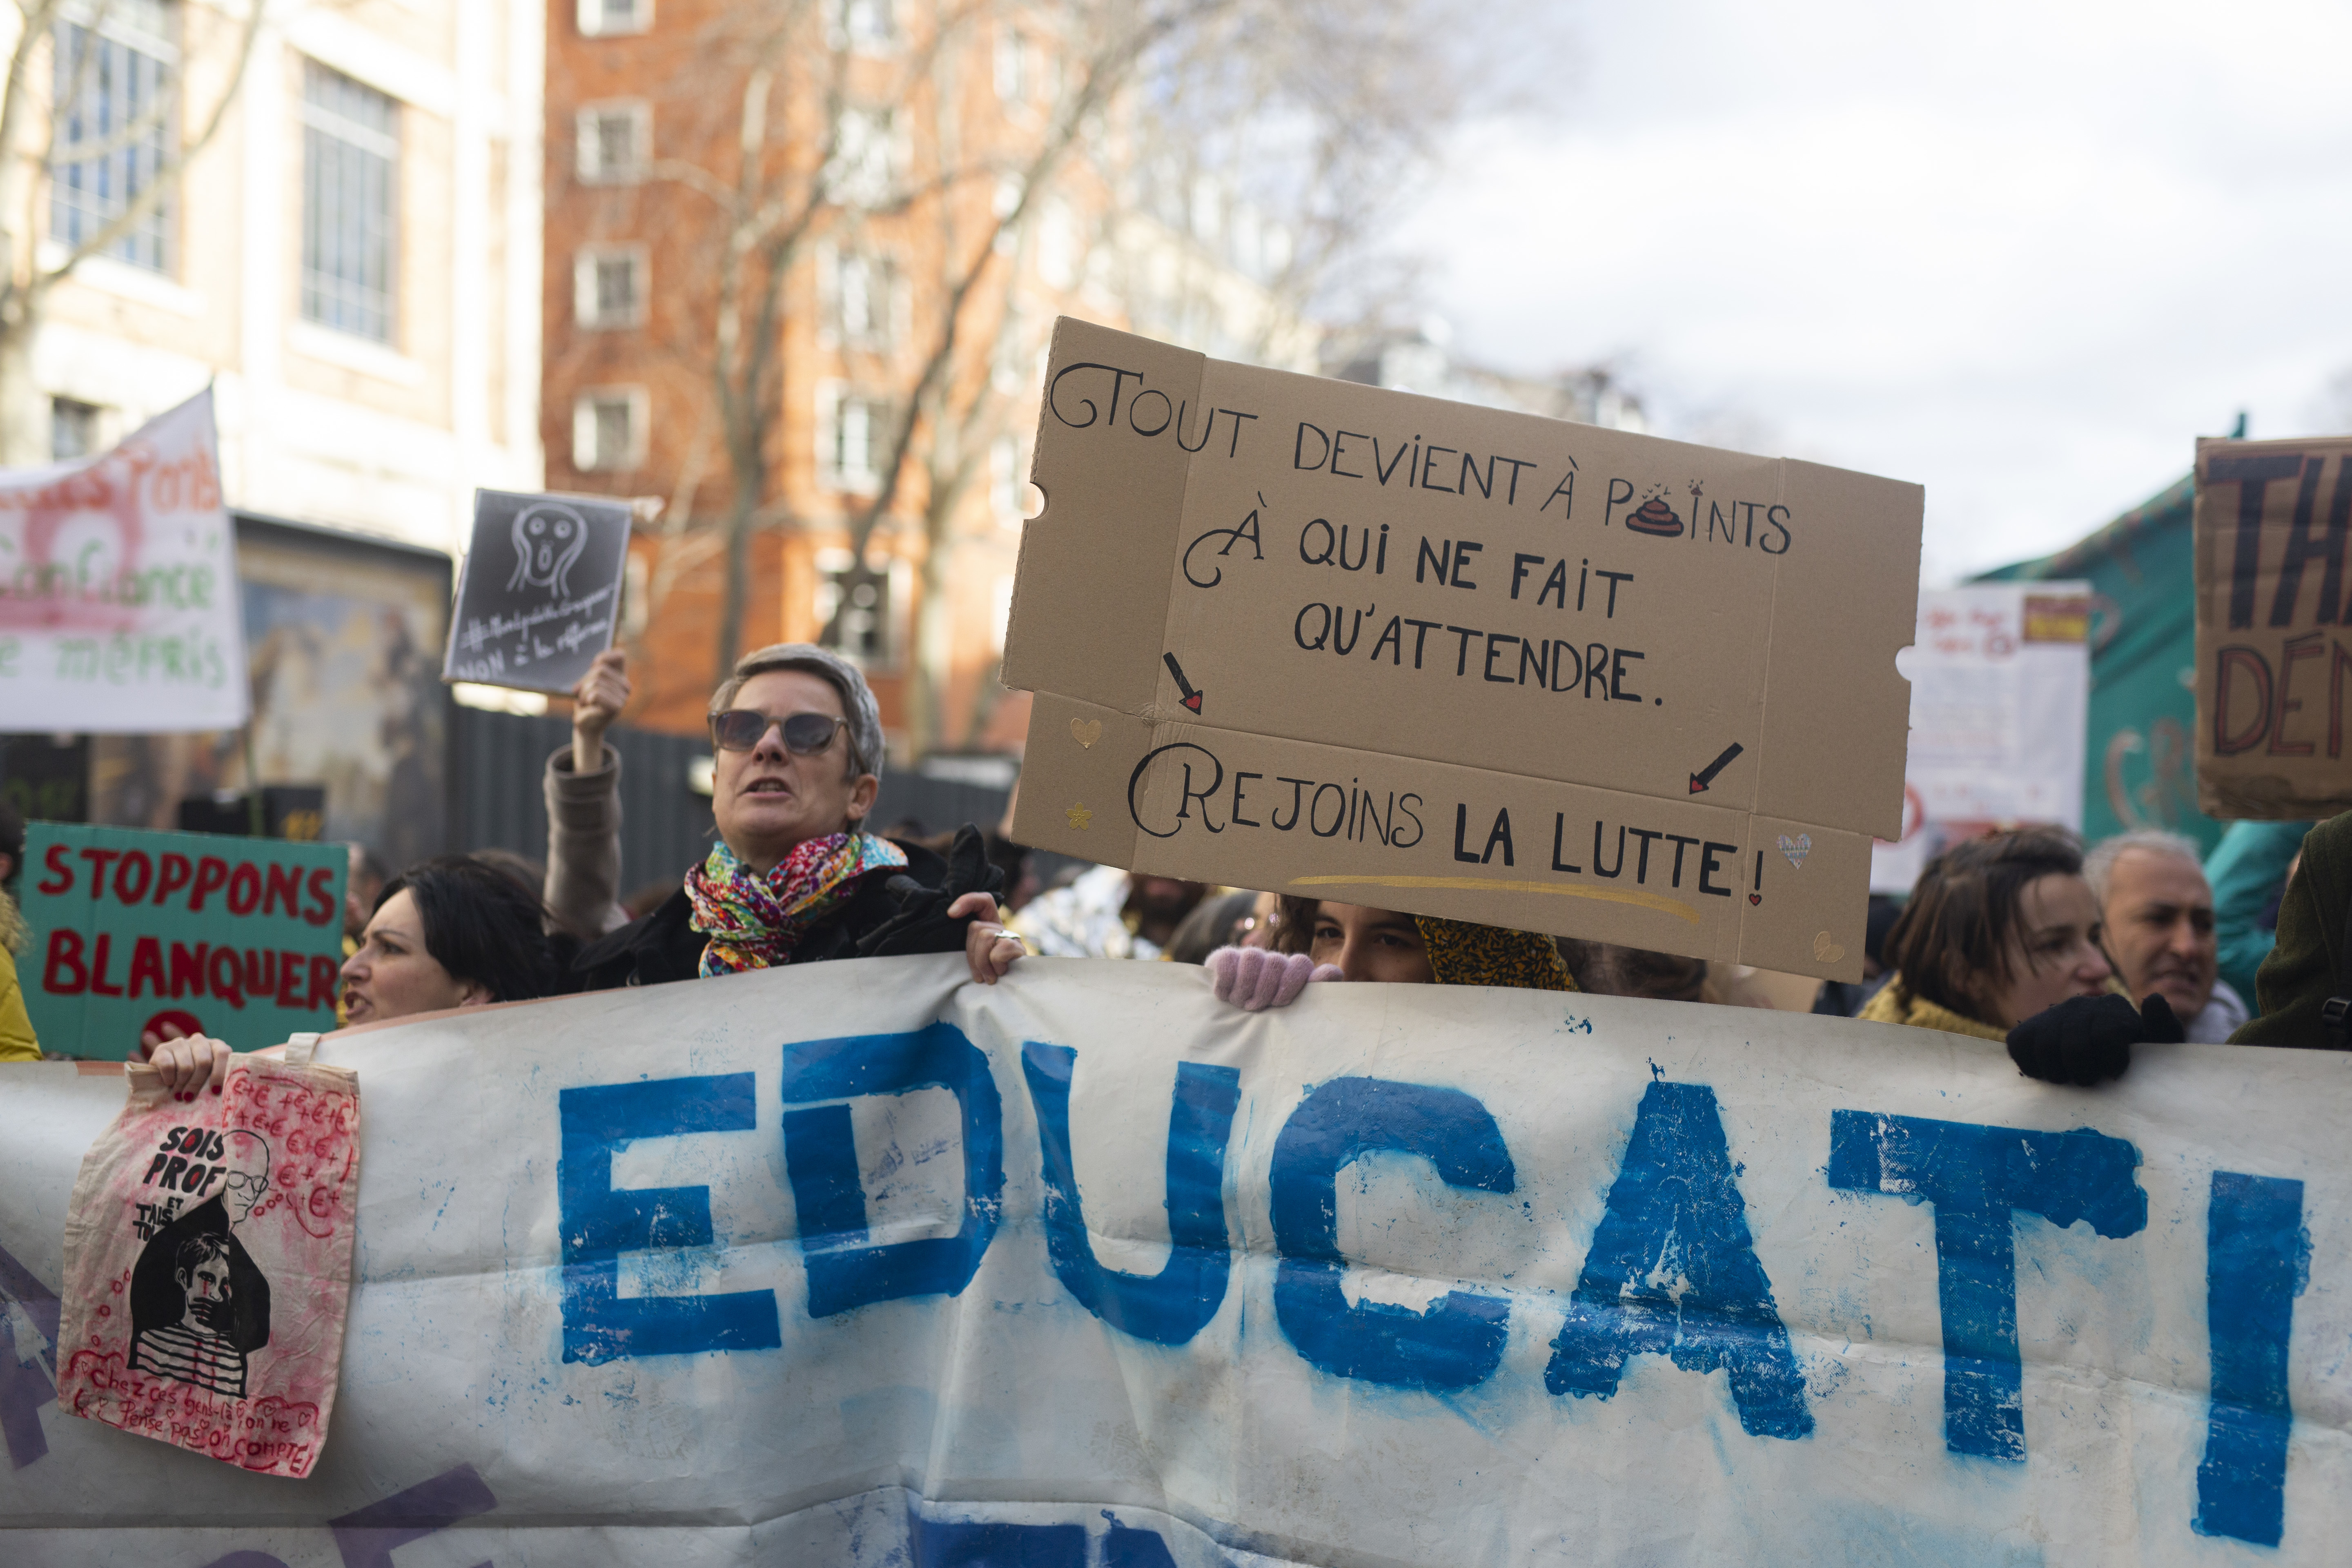 Confiance
mépris
NON à la réforme
TOUT DEVIENT À POINTS
À QUI NE FAIT
QU'ATTENDRE.
REJOINS LA LUTTE !
STOPPONS
BLANQUER
SOIS
PROF
ET
TAIS
€+€ +€+€+
Chez ces gens-là on ne
Pense pas on COMPTE!
EDUCATI
TH
DÉ